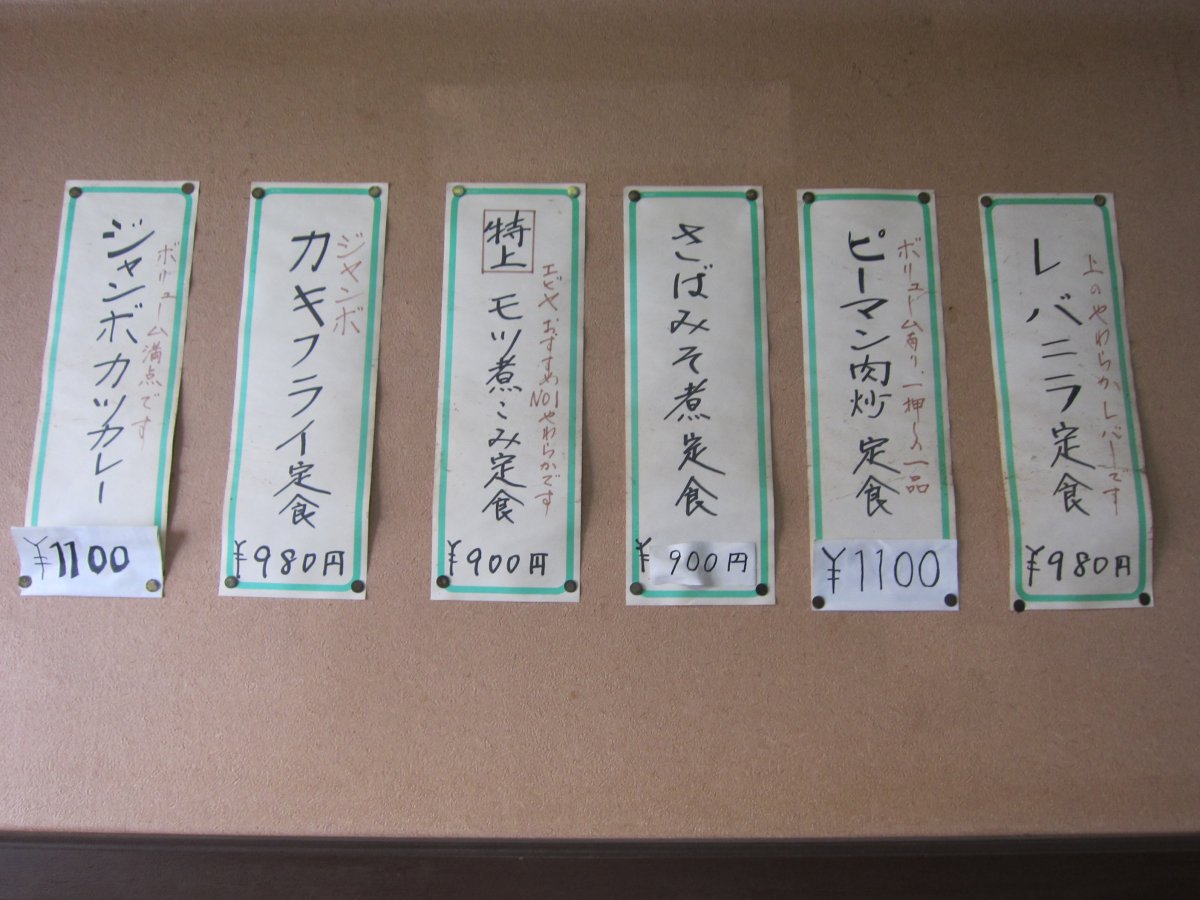 レバニラ定食
上のやわらかレバーです
¥980円
ピーマン肉炒定食
ボリュームあり、一押し一品
¥1100
さばみそ煮定食
¥900円
特上
モツ煮こみ定食
エビヤおすすめNO1やわらかです
¥900円
ジャンボ
カキフライ定食
¥980円
ジャンボカツカレー
ボリューム満点です
¥1100